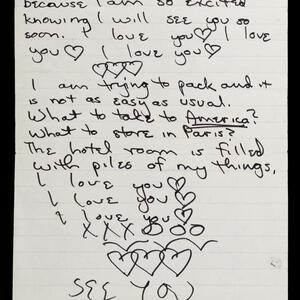 because I am so excited
knowing I will see you so
soon. I love you♡ I love
you♡ I love you♡
♡♡♡
I am trying to pack and it
is not as easy as usual.
What to take to America?
What to store in Paris?
The hotel room is filled
with piles of my things,
I love you♡
I love you♡
I love you♡
XXXOOO
♡♡♡
SEE YA